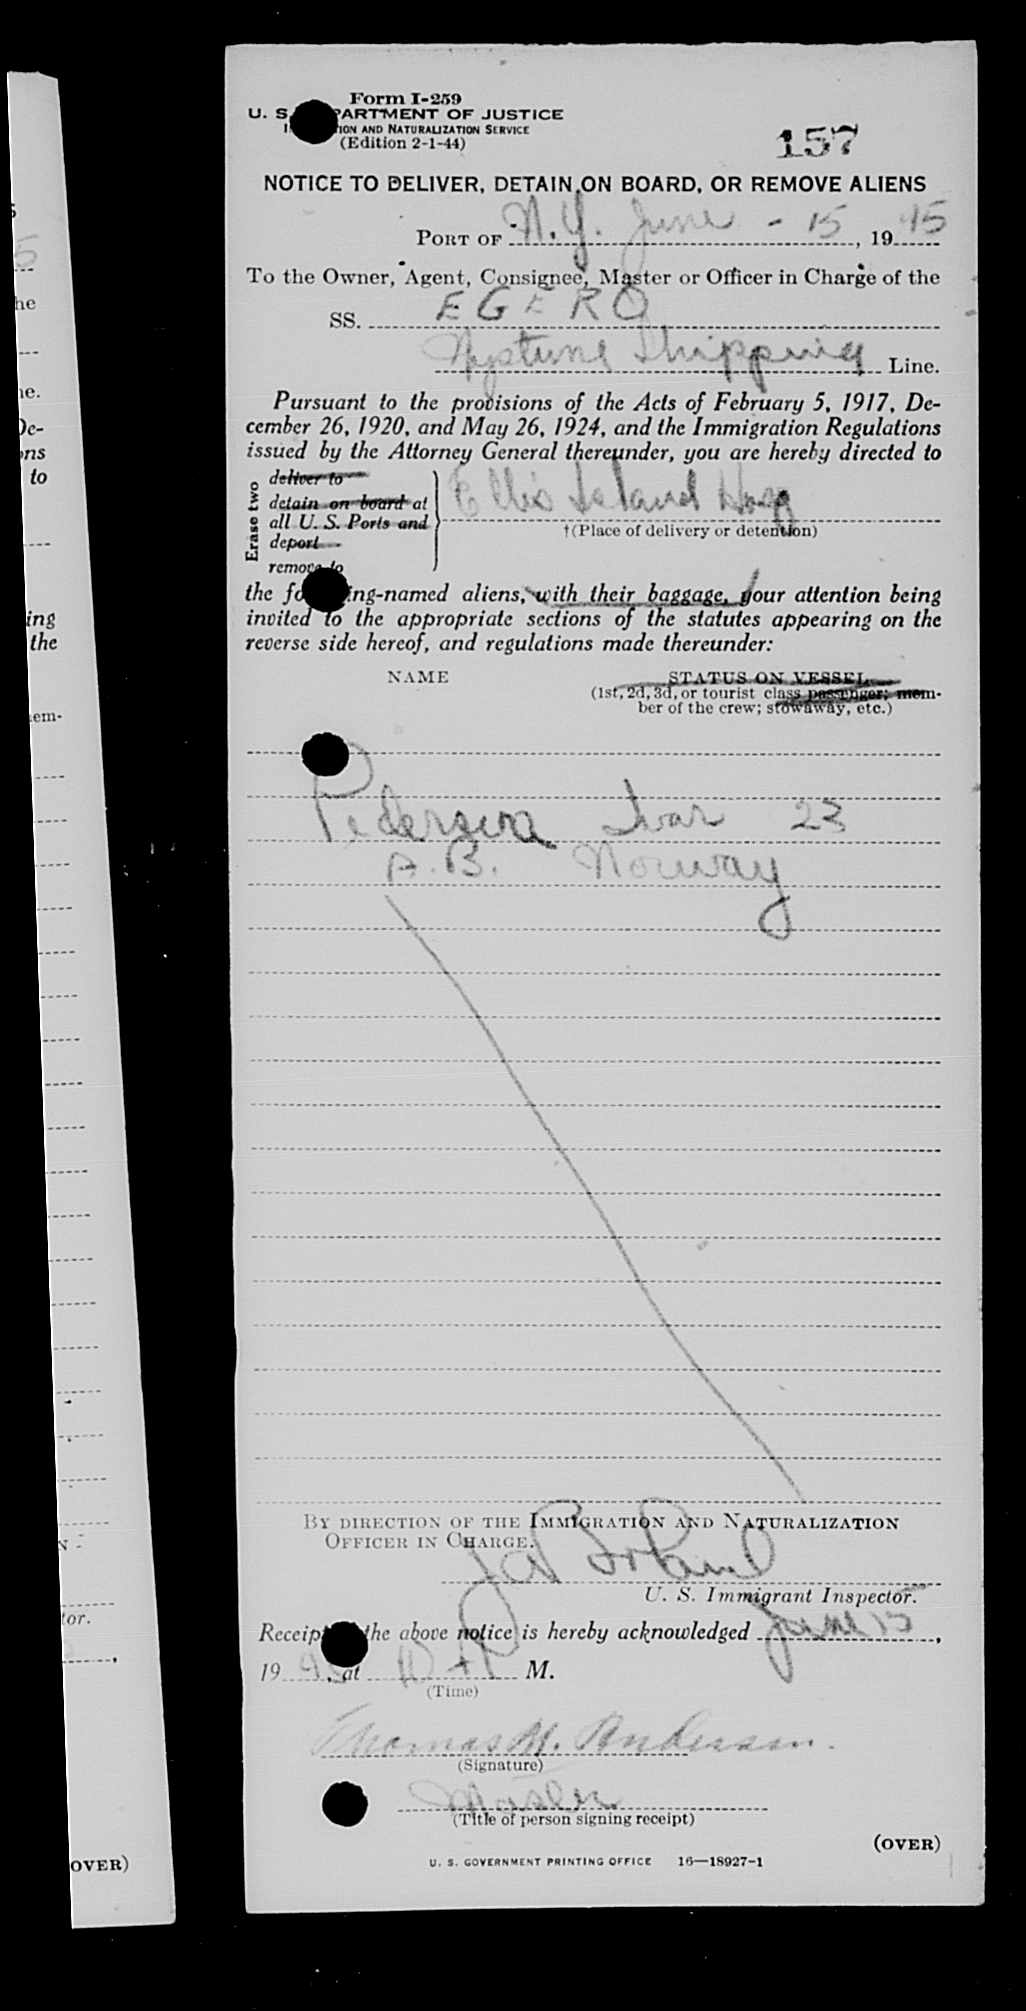 Form I-259
U. S. DEPARTMENT OF JUSTICE
IMMIGRATION AND NATURALIZATION SERVICE
(Edition 2-1-44)
157
NOTICE TO DELIVER, DETAIN ON BOARD, OR REMOVE ALIENS
PORT OF N.Y. June - 15, 1945
To the Owner, Agent, Consignee, Master or Officer in Charge of the
SS. EGERO
Neptune Shipping Line.
Pursuant to the provisions of the Acts of February 5, 1917, De-
cember 26, 1920, and May 26, 1924, and the Immigration Regulations
issued by the Attorney General thereunder, you are hereby directed to
Erase two
deliver to
detain on board at
all U. S. Ports and
deport
remove to
Ellis Island Hosp
†(Place of delivery or detention)
the following-named aliens, with their baggage, your attention being
invited to the appropriate sections of the statutes appearing on the
reverse side hereof, and regulations made thereunder:
NAME
STATUS ON VESSEL
(1st, 2d, 3d, or tourist class passenger; mem-
ber of the crew; stowaway, etc.)
Pedersen Ivar 23
A.B. Norway
BY DIRECTION OF THE IMMIGRATION AND NATURALIZATION
OFFICER IN CHARGE.
U. S. Immigrant Inspector.
Receipt of the above notice is hereby acknowledged June 15,
1945, at M.
(Time)
Thomas M. Anderson.
(Signature)
Master
(Title of person signing receipt)
(OVER)
U. S. GOVERNMENT PRINTING OFFICE 16—18927-1